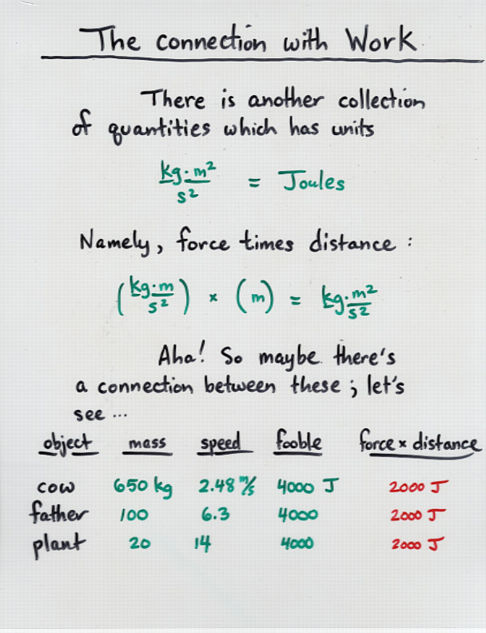 The connection with Work
There is another collection
of quantities which has units
kg·m²/s² = Joules
Namely, force times distance :
(kg·m/s²) × (m) = kg·m²/s²
Aha! So maybe there's
a connection between these ; let's
see ...
object mass speed fooble force × distance
cow 650 kg 2.48 m/s 4000 J 2000 J
father 100 6.3 4000 2000 J
plant 20 14 4000 2000 J